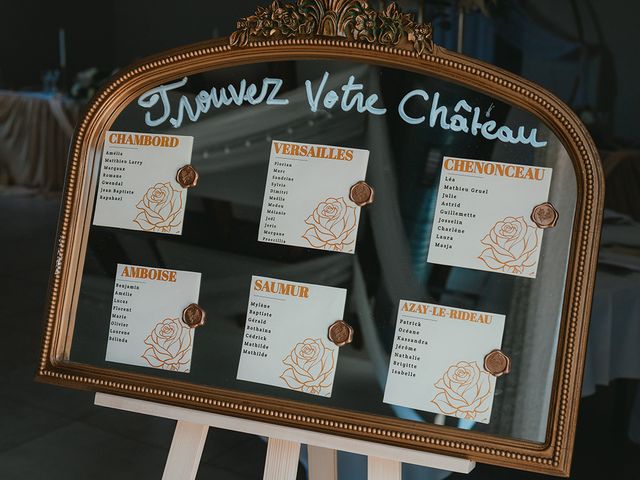 Trouvez Votre Château
CHAMBORD
Amélie
Matthieu Larry
Margaux
Romane
Gwendal
Jean Baptiste
Raphael
VERSAILLES
Florian
Marc
Sandrine
Sylvie
Dimitri
Maëlle
Medou
Mélanie
Joël
Joris
Morgane
Priscillia
CHENONCEAU
Léa
Mathieu Gruel
Julie
Astrid
Guillemette
Josselin
Charlène
Laura
Masja
AMBOISE
Benjamin
Amélie
Lucas
Florent
Marie
Olivier
Laurene
Bélinda
SAUMUR
Mylène
Baptiste
Gérald
Cédrick
Mathilde
Mathilde
AZAY-LE-RIDEAU
Patrick
Océane
Kassandra
Jérôme
Nathalie
Brigitte
Isabelle